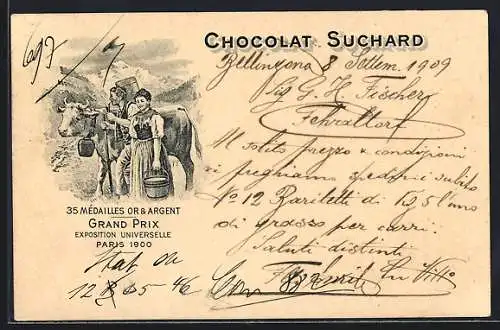 697
CHOCOLAT SUCHARD
Bellinzona 8 Settem. 1909
Sig G. H. Fischer
Fehraltorf
Al solito prezzo e condizioni
vi preghiamo spedirci subito
No 12 Bariletti di uno
di grasso per carri.
Saluti distinti
35 MÉDAILLES OR & ARGENT
GRAND PRIX
EXPOSITION UNIVERSELLE
PARIS 1900
12